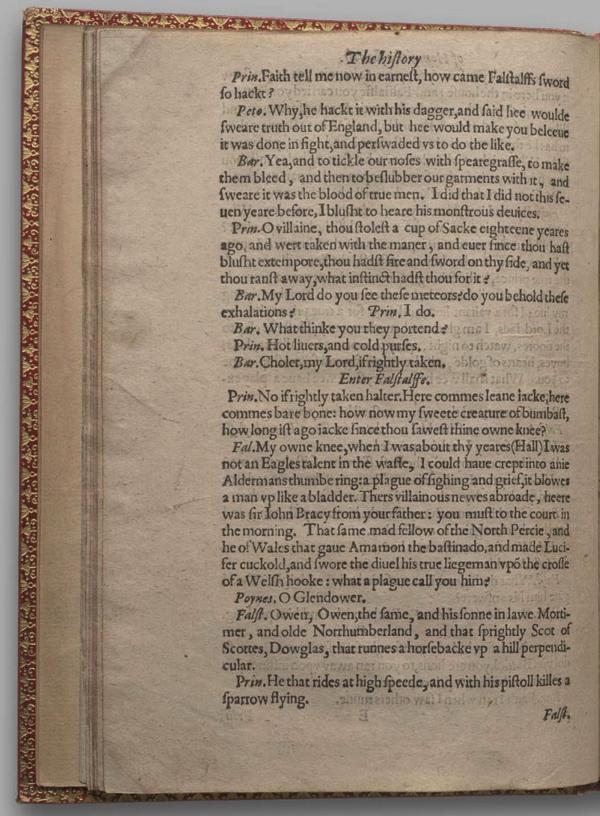 The hiſtory
Prin.Faith tell me now in earneſt, how came Falſtalffs ſword
ſo hackt?
Peto. Why,he hackt it with his dagger,and ſaid hee woulde
ſweare truth out of England, but hee would make you beleeue
it was done in fight,and perſwaded vs to do the like.
Bar. Yea,and to tickle our noſes with ſpearegraſſe, to make
them bleed, and then to beſlubber our garments with it, and
ſweare it was the blood of true men. I did that I did not this ſe-
uen yeare before, I bluſht to heare his monſtrous deuices.
Prin. O villaine, thou ſtoleſt a cup of Sacke eighteene yeares
ago, and wert taken with the maner, and euer ſince thou haſt
bluſht extempore,thou hadſt fire and ſword on thy ſide, and yet
thou ranſt away,what inſtinct hadſt thou for it?
Bar. My Lord do you ſee theſe meteors?do you behold theſe
exhalations? Prin. I do.
Bar. What thinke you they portend?
Prin. Hot liuers,and cold purſes.
Bar. Choler,my Lord,if rightly taken.
Enter Falſtalffe.
Prin. No if rightly taken halter. Here commes leane Iacke,here
commes bare bone: how now my ſweete creature of bumbaſt,
how long iſt ago iacke ſince thou ſaweſt thine owne knee?
Fal. My owne knee,when I was about thy yeares(Hall)I was
not an Eagles talent in the waſte, I could haue crept into anie
Aldermans thumbe ring: a plague of ſighing and grief,it blowes
a man vp like a bladder. Thers villainous newes abroade, heere
was ſir Iohn Bracy from your father: you muſt to the court in
the morning. That ſame mad fellow of the North Percie, and
he of Wales that gaue Amamon the baſtinado,and made Luci-
fer cuckold,and ſwore the diuel his true liegeman vpō the croſſe
of a Welſh hooke: what a plague call you him?
Poynes. O Glendower.
Falſt. Owen, Owen,the ſame, and his ſonne in lawe Morti-
mer, and olde Northumberland, and that ſprightly Scot of
Scottes, Dowglas, that runnes a horſebacke vp a hill perpendi-
cular.
Prin. He that rides at high ſpeede, and with his piſtoll killes a
ſparrow flying.
Falſt.